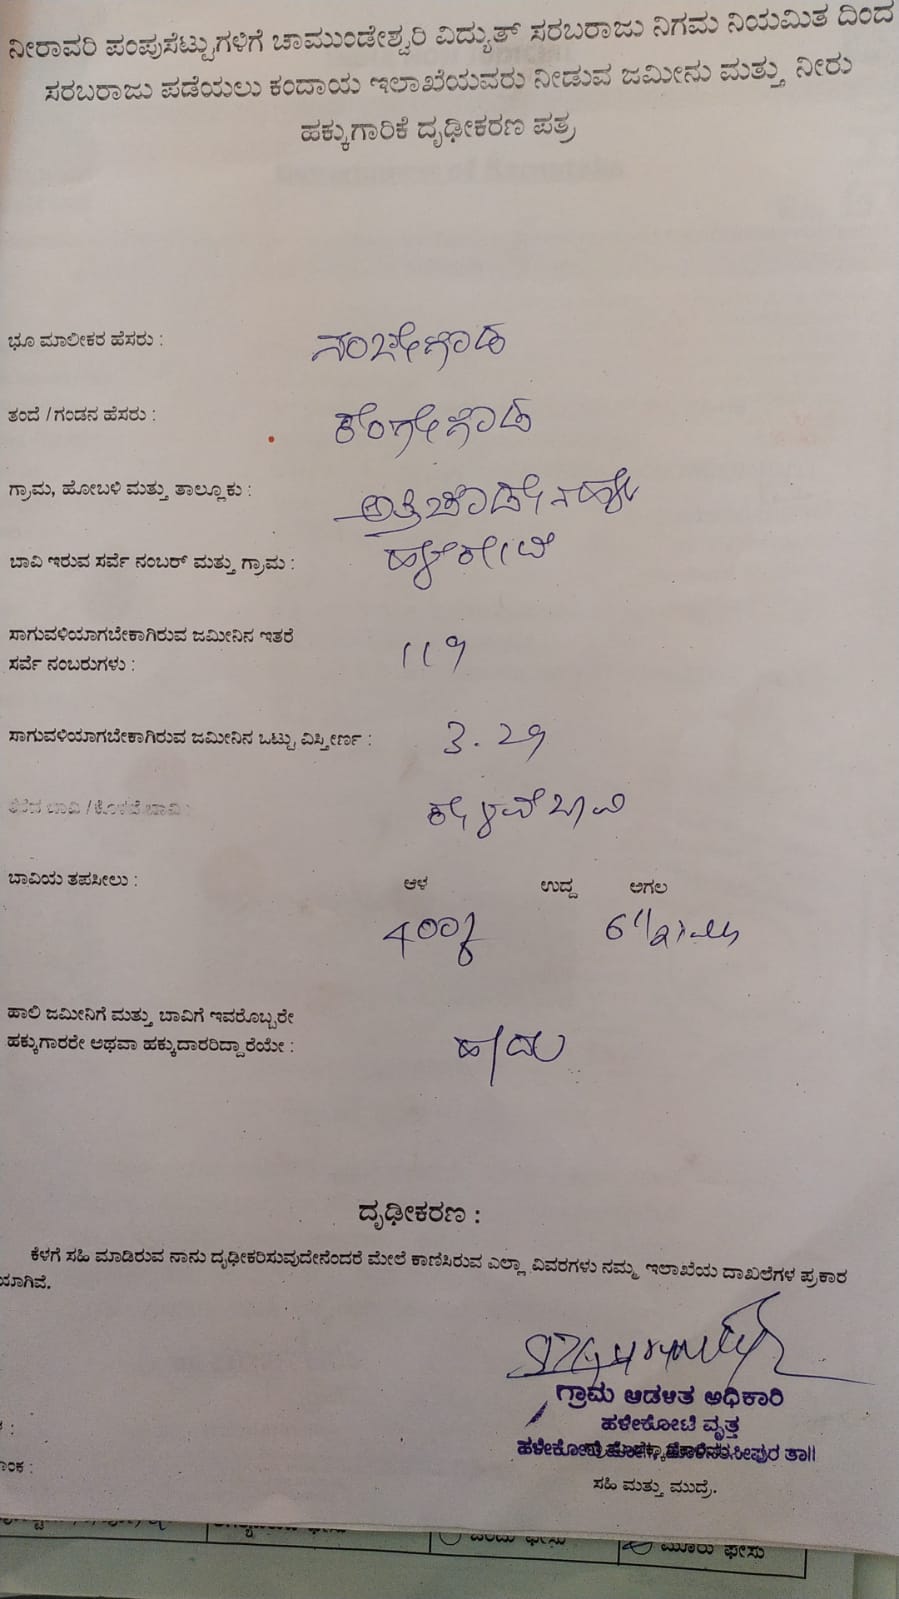 ನೀರಾವರಿ ಪಂಪುಸೆಟ್ಟುಗಳಿಗೆ ಚಾಮುಂಡೇಶ್ವರಿ ವಿದ್ಯುತ್ ಸರಬರಾಜು ನಿಗಮ ನಿಯಮಿತ ದಿಂದ
ಸರಬರಾಜು ಪಡೆಯಲು ಕಂದಾಯ ಇಲಾಖೆಯವರು ನೀಡುವ ಜಮೀನು ಮತ್ತು ನೀರು
ಹಕ್ಕುಗಾರಿಕೆ ದೃಢೀಕರಣ ಪತ್ರ
ಭೂ ಮಾಲೀಕರ ಹೆಸರು : ನಂಜೇಗೌಡ
ತಂದೆ / ಗಂಡನ ಹೆಸರು : ಕೆಂಗೇಗೌಡ
ಗ್ರಾಮ, ಹೋಬಳಿ ಮತ್ತು ತಾಲ್ಲೂಕು :
ಬಾವಿ ಇರುವ ಸರ್ವೆ ನಂಬರ್ ಮತ್ತು ಗ್ರಾಮ : ಹಳೇಕೋಟೆ
ಸಾಗುವಳಿಯಾಗಬೇಕಾಗಿರುವ ಜಮೀನಿನ ಇತರೆ
ಸರ್ವೆ ನಂಬರುಗಳು : 119
ಸಾಗುವಳಿಯಾಗಬೇಕಾಗಿರುವ ಜಮೀನಿನ ಒಟ್ಟು ವಿಸ್ತೀರ್ಣ : 3.29
ತೆರೆದ ಬಾವಿ / ಕೊಳವೆ ಬಾವಿ : ಕೊಳವೆ ಬಾವಿ
ಬಾವಿಯ ತಪಸೀಲು : ಆಳ ಉದ್ದ ಅಗಲ
400 6"
ಹಾಲಿ ಜಮೀನಿಗೆ ಮತ್ತು ಬಾವಿಗೆ ಇವರೊಬ್ಬರೇ
ಹಕ್ಕುಗಾರರೇ ಅಥವಾ ಹಕ್ಕುದಾರರಿದ್ದಾರೆಯೇ : ಹೌದು
ದೃಢೀಕರಣ :
ಕೆಳಗೆ ಸಹಿ ಮಾಡಿರುವ ನಾನು ದೃಢೀಕರಿಸುವುದೇನೆಂದರೆ ಮೇಲೆ ಕಾಣಿಸಿರುವ ಎಲ್ಲಾ ವಿವರಗಳು ನಮ್ಮ ಇಲಾಖೆಯ ದಾಖಲೆಗಳ ಪ್ರಕಾರ
ಯಾಗಿವೆ.
ಗ್ರಾಮ ಆಡಳಿತ ಅಧಿಕಾರಿ
ಹಳೇಕೋಟೆ ವೃತ್ತ
ಹಳೇಕೋಟೆ ತಾ||
ಾಂಕ :
ಸಹಿ ಮತ್ತು ಮುದ್ರೆ.
ಒಂದು ಫೇಸು ಮೂರು ಫೇಸು